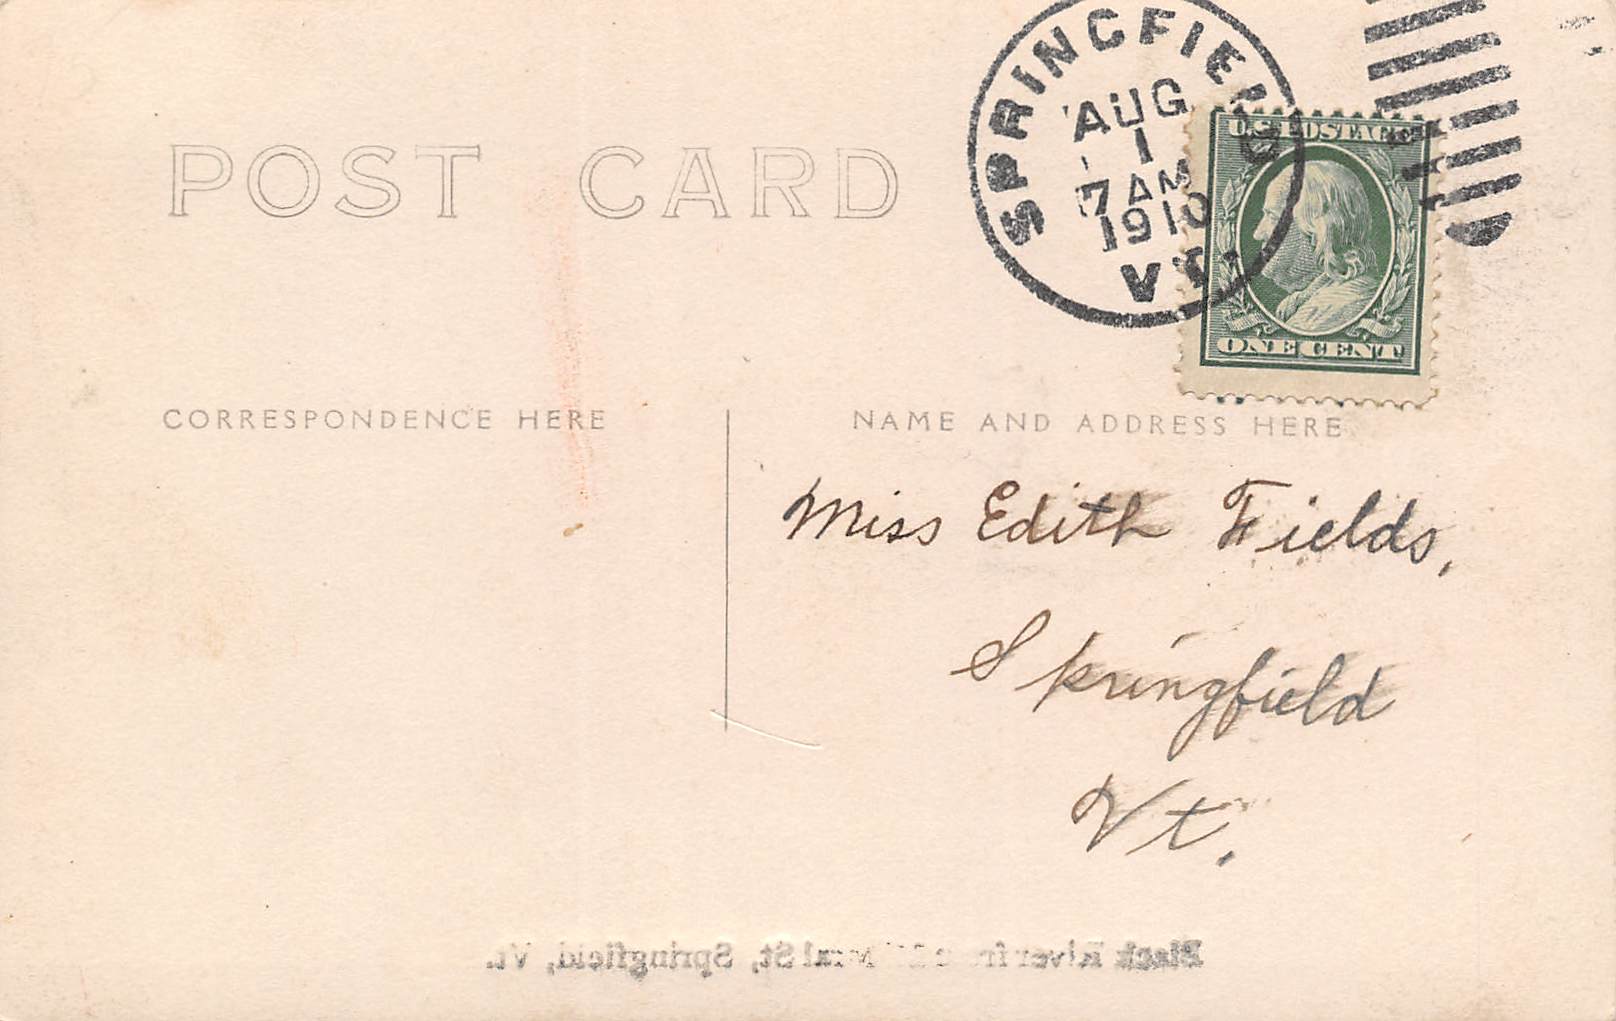 SPRINGFIELD
AUG
1
7 AM
1910
VT.
U.S. POSTAGE
ONE CENT
POST CARD
CORRESPONDENCE HERE
NAME AND ADDRESS HERE
Miss Edith Fields,
Springfield
Vt.
Black River from Mineral St, Springfield, Vt.